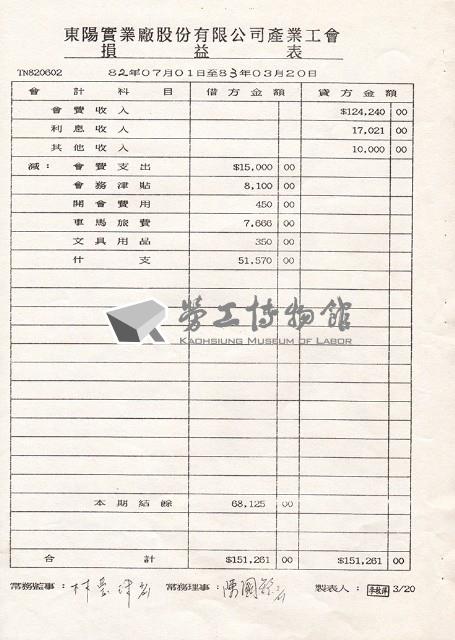 東陽實業廠股份有限公司產業工會
損益表
TN820602 82年07月01日至83年03月20日
會計科目 借方金額 貸方金額
會費收入 $124,240 00
利息收入 17,021 00
其他收入 10,000 00
減：會費支出 $15,000 00
會務津貼 8,100 00
開會費用 450 00
車馬旅費 7,666 00
文具用品 350 00
什支 51,570 00
勞工博物館
KAOHSIUNG MUSEUM OF LABOR
本期結餘 68,125 00
合計 $151,261 00 $151,261 00
常務監事： 常務理事：陳國 製表人： 3/20